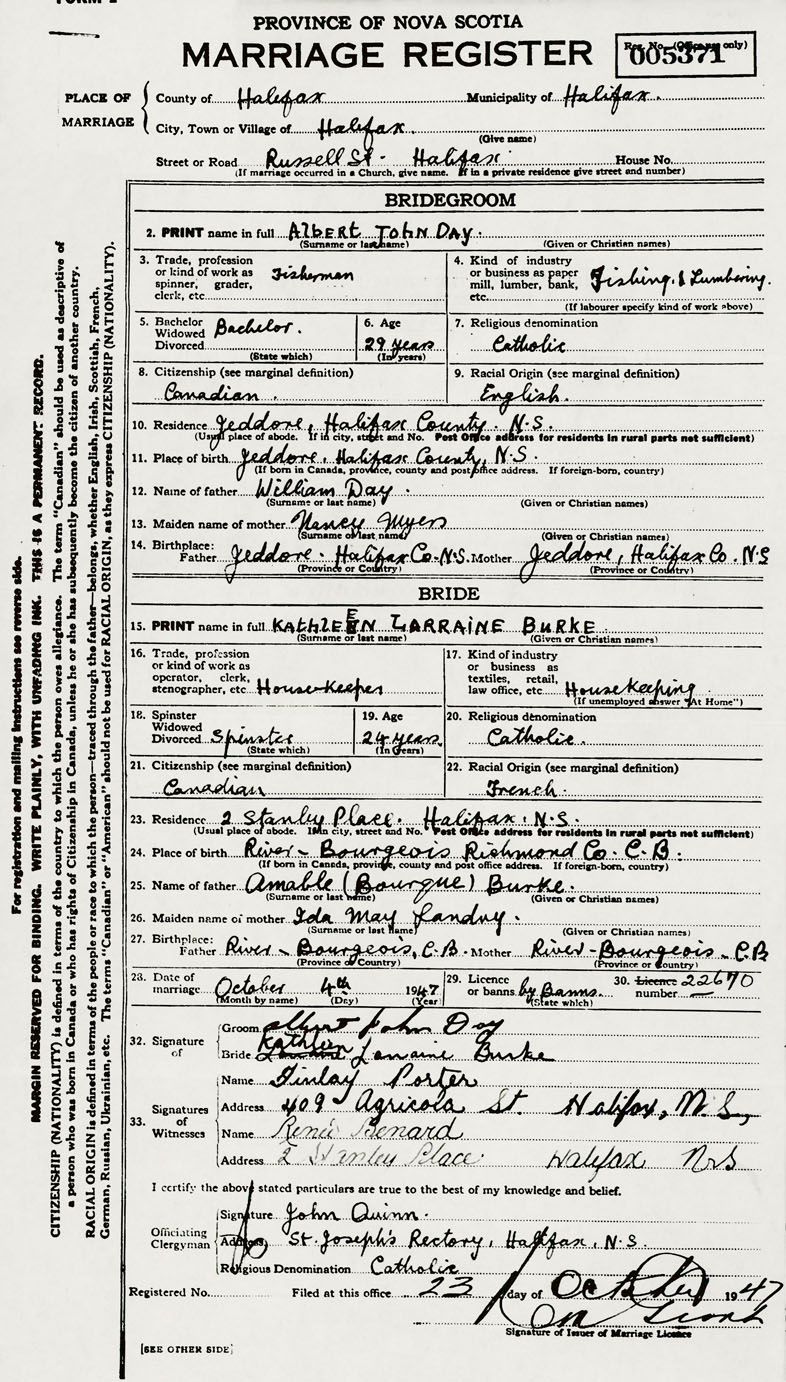 PROVINCE OF NOVA SCOTIA
MARRIAGE REGISTER
Reg. No. (Office use only)
005371
PLACE OF MARRIAGE
County of Halifax Municipality of Halifax.
City, Town or Village of Halifax.
(Give name)
Street or Road Russell St. Halifax House No.
(If marriage occurred in a Church, give name. If in a private residence give street and number)
BRIDEGROOM
2. PRINT name in full ALBERT JOHN DAY.
(Surname or last name) (Given or Christian names)
3. Trade, profession or kind of work as spinner, grader, clerk, etc. Fisherman
4. Kind of industry or business as paper mill, lumber, bank, etc. Fishing & Lumbering.
(If labourer specify kind of work above)
5. Bachelor Widowed Divorced Bachelor.
(State which)
6. Age 29 years
(In years)
7. Religious denomination Catholic
8. Citizenship (see marginal definition) Canadian.
9. Racial Origin (see marginal definition) English.
10. Residence Jeddore, Halifax County. N.S.
(Usual place of abode. If in city, street and No. Post Office address for residents in rural parts not sufficient)
11. Place of birth Jeddore, Halifax County, N.S.
(If born in Canada, province, county and post office address. If foreign-born, country)
12. Name of father William Day.
(Surname or last name) (Given or Christian names)
13. Maiden name of mother Nancy Myers
(Surname or last name) (Given or Christian names)
14. Birthplace: Father Jeddore. Halifax Co. N.S. Mother Jeddore, Halifax Co. N.S
(Province or Country) (Province or Country)
BRIDE
15. PRINT name in full KATHLEEN LARRAINE BURKE
(Surname or last name) (Given or Christian names)
16. Trade, profession or kind of work as operator, clerk, stenographer, etc. House-Keeper
17. Kind of industry or business as textiles, retail, law office, etc. House Keeping
(If unemployed answer "At Home")
18. Spinster Widowed Divorced Spinster
(State which)
19. Age 24 years
(In years)
20. Religious denomination Catholic.
21. Citizenship (see marginal definition) Canadian
22. Racial Origin (see marginal definition) French.
23. Residence 2 Stanley Place. Halifax. N.S.
(Usual place of abode. If in city, street and No. Post Office address for residents in rural parts not sufficient)
24. Place of birth River-Bourgeois Richmond Co. C.B.
(If born in Canada, province, county and post office address. If foreign-born, country)
25. Name of father Amable (Bourque) Burke.
(Surname or last name) (Given or Christian names)
26. Maiden name of mother Ida May Landry.
(Surname or last name) (Given or Christian names)
27. Birthplace: Father River-Bourgeois, C.B. Mother River-Bourgeois - C.B
(Province or Country) (Province or Country)
28. Date of marriage October 4th 1947
(Month by name) (Day) (Year)
29. Licence or banns by Banns.
(State which)
30. Licence number 22670
32. Signature of
Groom Albert John Day
Bride Kathleen Lorraine Burke
33. Signatures of Witnesses
Name Finlay Porter
Address 409 Agricola St. Halifax, N.S,
Name Renée Benard
Address 2 Stanley Place. Halifax N.S
I certify the above stated particulars are true to the best of my knowledge and belief.
Officiating Clergyman
Signature John Quinn.
Address St. Joseph's Rectory, Halifax, N.S.
Religious Denomination Catholic
Registered No. Filed at this office 23 day of October 1947
Signature of Issuer of Marriage Licence
[SEE OTHER SIDE]
For registration and mailing instructions see reverse side.
MARGIN RESERVED FOR BINDING. WRITE PLAINLY, WITH UNFADING INK. THIS IS A PERMANENT RECORD.
CITIZENSHIP (NATIONALITY) is defined in terms of the country to which the person owes allegiance. The term "Canadian" should be used as descriptive of
a person who was born in Canada or who has rights of Citizenship in Canada, unless he or she has subsequently become the citizen of another country.
RACIAL ORIGIN is defined in terms of the people or race to which the person—traced through the father—belongs, whether English, Irish, Scottish, French,
German, Russian, Ukrainian, etc. The terms "Canadian" or "American" should not be used for RACIAL ORIGIN, as they express CITIZENSHIP (NATIONALITY).